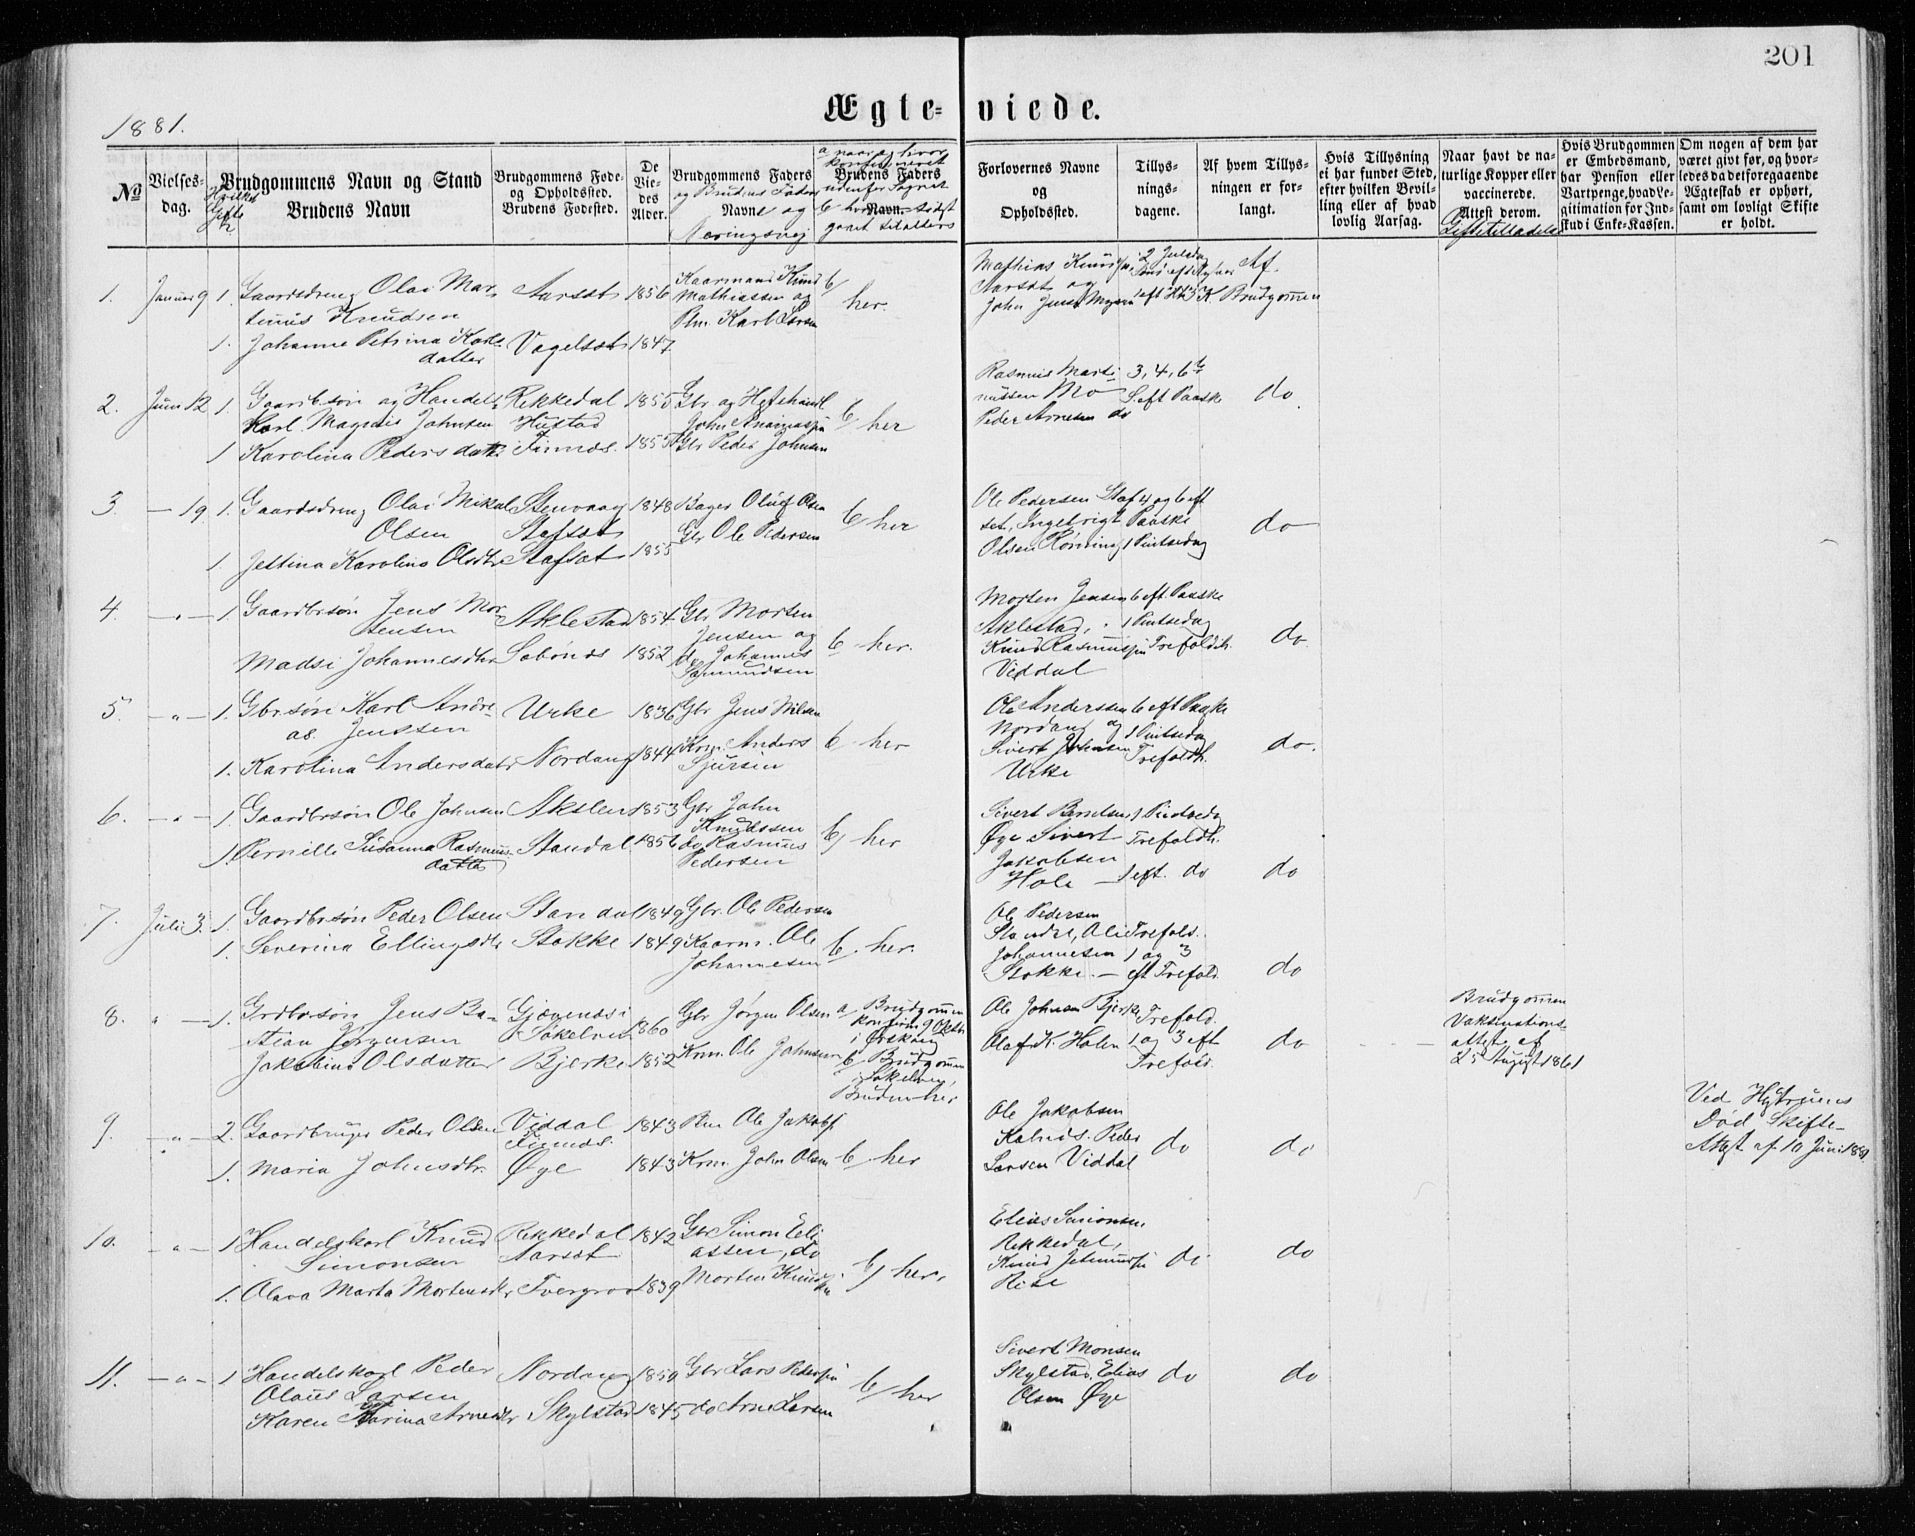 201
Ægteviede.
1881.
No
Vielsesdag.
Hvilket Gifte
Brudgommens Navn og Stand
Brudens Navn
Brudgommens Føde-
og Opholdssted.
Brudens Fødested.
De
Vie-
des
Alder.
Brudgommens Faders
og Brudens Faders
Navne og
Næringsvej
Brudens Faders
Navn.
Forlovernes Navne
og
Opholdssted.
Tillys-
nings-
dagene.
Af hvem Tillys-
ningen er for-
langt.
Hvis Tillysning
ei har fundet Sted,
efter hvilken Bevil-
ling eller af hvad
lovlig Aarsag.
Naar havt de na-
turlige Kopper eller
vaccinerede.
Attest derom.
Giftetilladelse
Hvis Brudgommen
er Embedsmand,
har Pension eller
Vartpenge, hvad Le-
gitimation for Ind-
skud i Enke-Kassen.
Om nogen af dem har
været givt før, og hvor-
ledes da det foregaaende
Ægteskab er ophørt,
samt om lovligt Skifte
er holdt.
1. Januar 9 1. Gaardsdreng Olai Mar- Aarset 1856 Kaarmand Knud b/ her.
tinus Knudsen Mathiassen og
1. Johanne Petrina Karls- Vagelset 1847 Plm. Karl Larsen
datter
Mathias Knuds
Aarset og
John Jens Myren
2 Juledag
Af
Brudgommen
2. Juni 12 1. Gaardbrsøn og Handels- Rekkedal 1855 Gbr og Hestehandl b/ her
Karl Magndis Johnsen Hustad John Ananiassen
1 Karolina Pedersdatter Finnes. 1855 Gbr Peder Johnsen
Rasmus Marti- 3, 4, 6te
nussen Mo S. eft Paaske do
Peder Arnesen do
3. — 19. 1. Gaardsdreng Olai Mikal Stenvaag 1848 Bager Oluf Olsen b/ her
Olsen Stafset Gbr Ole Pedersen
1. Jettina Karolina Olsdtr Stafset 1855
Ole Pedersen Staf- 4 og 6 eft
set, Ingebrigt Paaske do
Olsen Rønning 1 Pintsedag
4. — " — 1. Gaardbrsøn Jens Mor- Aklestad 1854 Gbr Morten
tensen Jensen og b her.
Madsi Johannesdtr Sæbønes 1852 do Johannes
Sæmundsen
Morten Jensen 6 eft. Paaske
Aklestad, 1 Pintsedag
Knud Rasmussen Trefoldh. do.
Viddal
5. — " — 1. Gbrsøn Karl Andre- Urke 1836 Gbr Jens Nilsen
as Jenssen b her
1. Karolina Andersdatr Nordang 1844 Krm. Anders
Sjursen
Ole Andersen 6 eft Paaske
Nordang og 1 Pintsedag
Sivert Johnsen Trefoldh. do.
Urke
6. — " — 1. Gaardbrsøn Ole Johnsen Akslen 1853 Gbr John
Knudssen b/ her
1. Pernille Susanna Rasmus- Standal 1856 do Rasmus
datter Pedersen
Sivert Berntsen 1 Pintsedag
Øye Sivert Trefoldh.
Jakobsen
Hole — 1 eft. do do
7. Juli 3. 1. Gaardbrsøn Peder Olsen Standal 1849 Gbr. Ole Pedersen
1. Severina Ellingsdtr Stokke 1849 Kaarm. Ole b. her.
Johannesen
Ole Pedersen
Standal, Ole Trefold.
Johannesen 1 og 3
Stokke. — eft Trefold. do
8. " — 1. Grdbrsøn Jens Ba- Gjævenes i 1860 Gbr Jørgen Olsen a/ Brudgommen
stian Jørgensen Søkelven konfirm. 9 Oktbr
i Ørskoug
Jakobina Olsdatter Bjerke 1852 Krm. Ole Johnsen b/ Brudgommen
i Søkelven,
Bruden her
Ole Johnsen Bjerke Trefold.
Olaf K. Holen 1 og 3 eft do
Trefold.
Brudgommen
Vaksinations-
attest af
25 August 1861
9. — " — 2. Gaardbruger Peder Olsen Viddal 1843 Plm Ole Jakobs.
1. Maria Johnsdtr. Øye 1843 Krm. John Olsen b/ her
Ole Jakobsen
Kalnes. Peder do do
Larsen Viddal
Ved Hustruens
Død Skifte-
Attest af 10 Juni 1881.
10. — " — 1 Handelskarl Knud Rekkedal 1842 Gbr Simon Eli-
Simonsen Aarset assen, do b/ her.
1. Olava Marta Mortensdtr Tvergrov 1839 Morten Knudsen
Elias Simonsen
Rekkedal,
Knud do do
Rise
11. — " — 1 Handelskarl Peder Nordang 1859 Gbr Lars Pedersen
Olaus Larsen b/ her
Karen Marina Arnesdtr Skylstad 1845 do Arne Larsen
Sivert Monsen
Skylstad, Elias do do
Olsen Øye